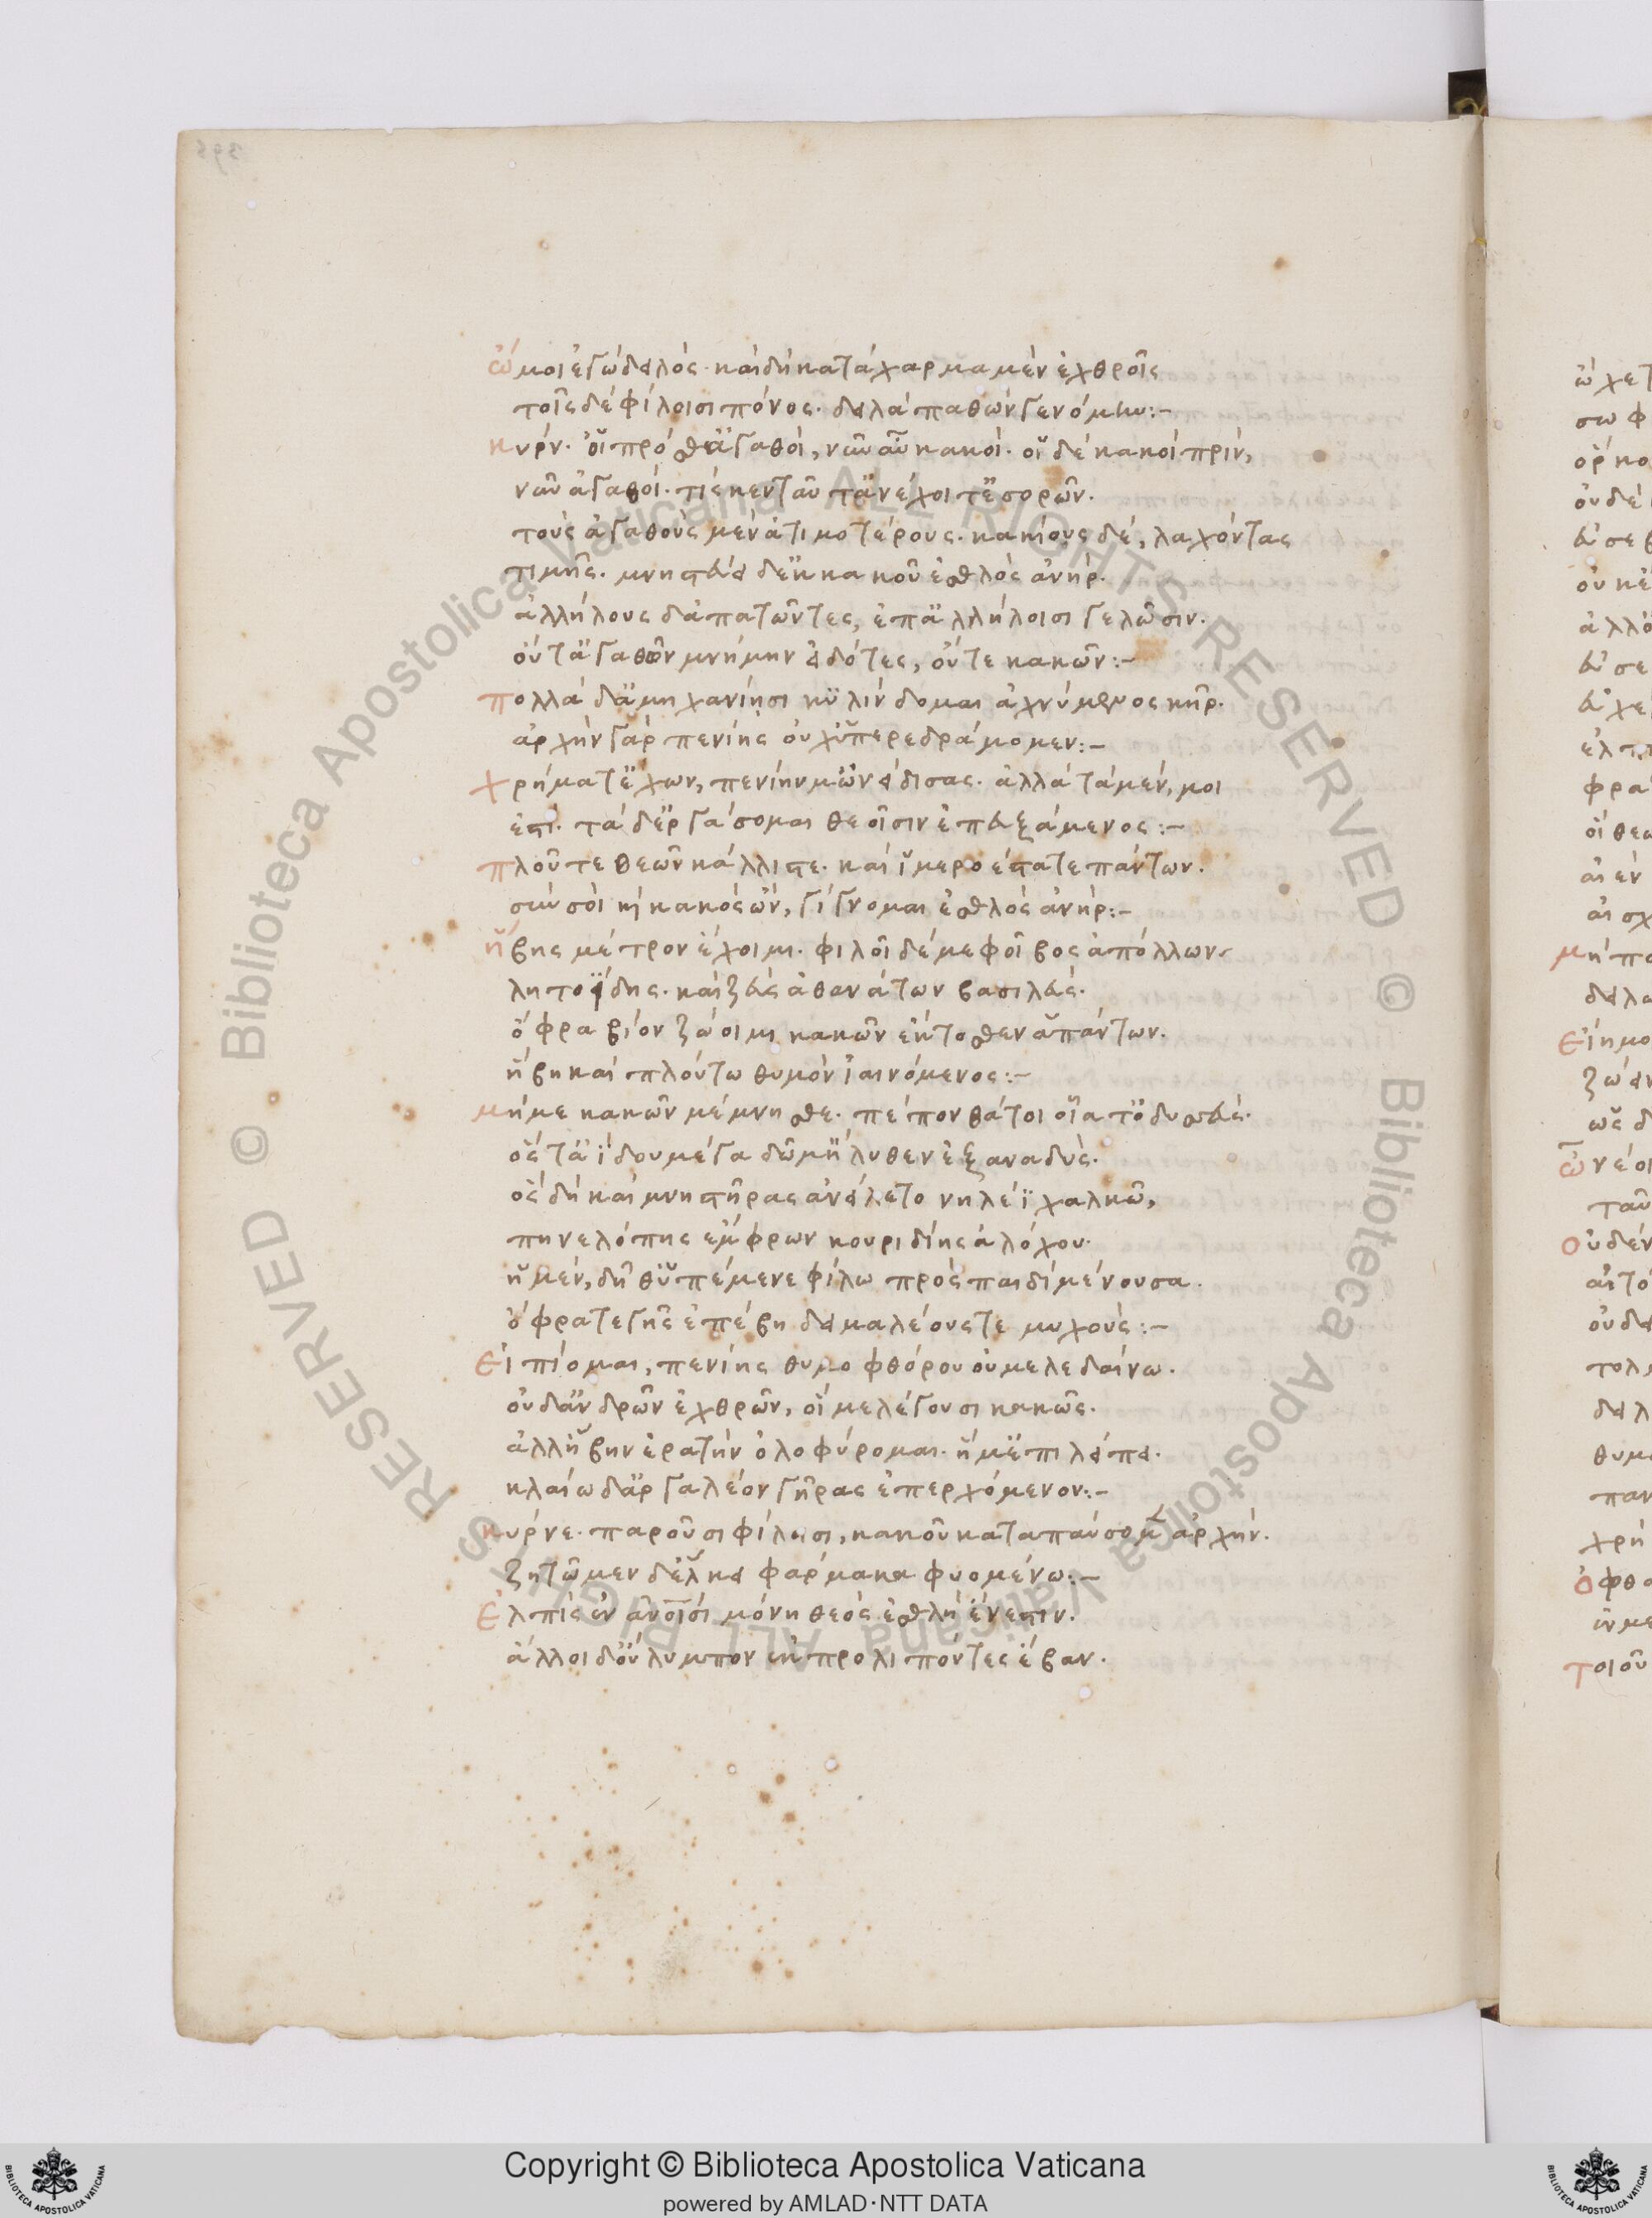 ὤμοι ἐγὼ δειλός· καὶ δὴ κατάχαρμα μὲν ἐχθροῖς
τοῖς δὲ φίλοισι πόνος· δειλὰ παθὼν γενόμην:-
κύρν· οἳ πρόσθ' ἀγαθοὶ, νῦν αὖ κακοί· οἳ δὲ κακοὶ πρὶν,
νῦν ἀγαθοί· τίς κεν ταῦτ' ἀνέχοιτ' ἐσορῶν·
τοὺς ἀγαθοὺς μὲν ἀτιμοτέρους· κακίους δὲ, λαχόντας
τιμῆς· μνηστεύει δ' ἐκ κακοῦ ἐσθλὸς ἀνήρ·
ἀλλήλους δ' ἀπατῶντες, ἐπ' ἀλλήλοισι γελῶσιν·
οὔτ' ἀγαθῶν μνήμην εἰδότες, οὔτε κακῶν:-
πολλὰ δ' ἀμηχανίῃσι κυλίνδομαι ἀχνύμενος κῆρ·
ἀρχὴν γὰρ πενίης οὐχ ὑπερεδράμομεν:-
χρήματ' ἔχων, πενίην μ' ὠνείδισας· ἀλλὰ τὰ μέν, μοι
ἐστι· τὰ δ' ἐργάσομαι θεοῖσιν ἐπευξάμενος:-
πλοῦτε θεῶν κάλλιστε· καὶ ἱμεροέστατε πάντων·
σὺν σοὶ κὴ κακὸς ὢν, γίγνομαι ἐσθλὸς ἀνήρ:-
ἥβης μέτρον ἔχοιμι· φιλοῖ δέ με φοῖβος ἀπόλλων
λητοΐδης· καὶ ζεὺς ἀθανάτων βασιλεύς·
ὄφρα βίον ζώοιμι κακῶν ἔκτοσθεν ἁπάντων·
ἥβη καὶ πλούτω θυμὸν ἰαινόμενος:-
μή με κακῶν μέμνησθε· πέπονθά τοι οἷά τ' ὀδυσεύς·
ὅς τ' ἀίδου μέγα δῶμ' ἤλυθεν ἐξαναδύς·
ὃς δὴ καὶ μνηστῆρας ἀνείλετο νηλέϊ χαλκῶ,
πηνελόπης ἔμφρων κουριδίης ἀλόχου·
ἥ μεν, δῆθ' ὑπέμενε φίλω πρὸς παιδὶ μένουσα·
ὄφρα τε γῆς ἐπέβη δειμαλέους τε μυχούς:-
Εἰ πίομαι, πενίης θυμοφθόρου οὐ μελεδαίνω·
οὐδ' ἀνδρῶν ἐχθρῶν, οἵ με λέγουσι κακῶς·
ἀλλ' ἥβην ἐρατὴν ὀλοφύρομαι· ἥ μ' ἐπιλείπει·
κλαίω δ' ἀργαλέον γῆρας ἐπερχόμενον:-
κύρνε· παροῦσι φίλοισι, κακοῦ καταπαύσομεν ἀρχήν·
ζητῶμεν δ' ἕλκει φάρμακα φυομένω:-
Ἐλπὶς ἐν ἀνοῖσι μόνη θεὸς ἐσθλὴ ἔνεστιν·
ἄλλοι δ' οὔλυμπον ἐκπρολιπόντες ἔβαν·
Copyright © Biblioteca Apostolica Vaticana
powered by AMLAD・NTT DATA